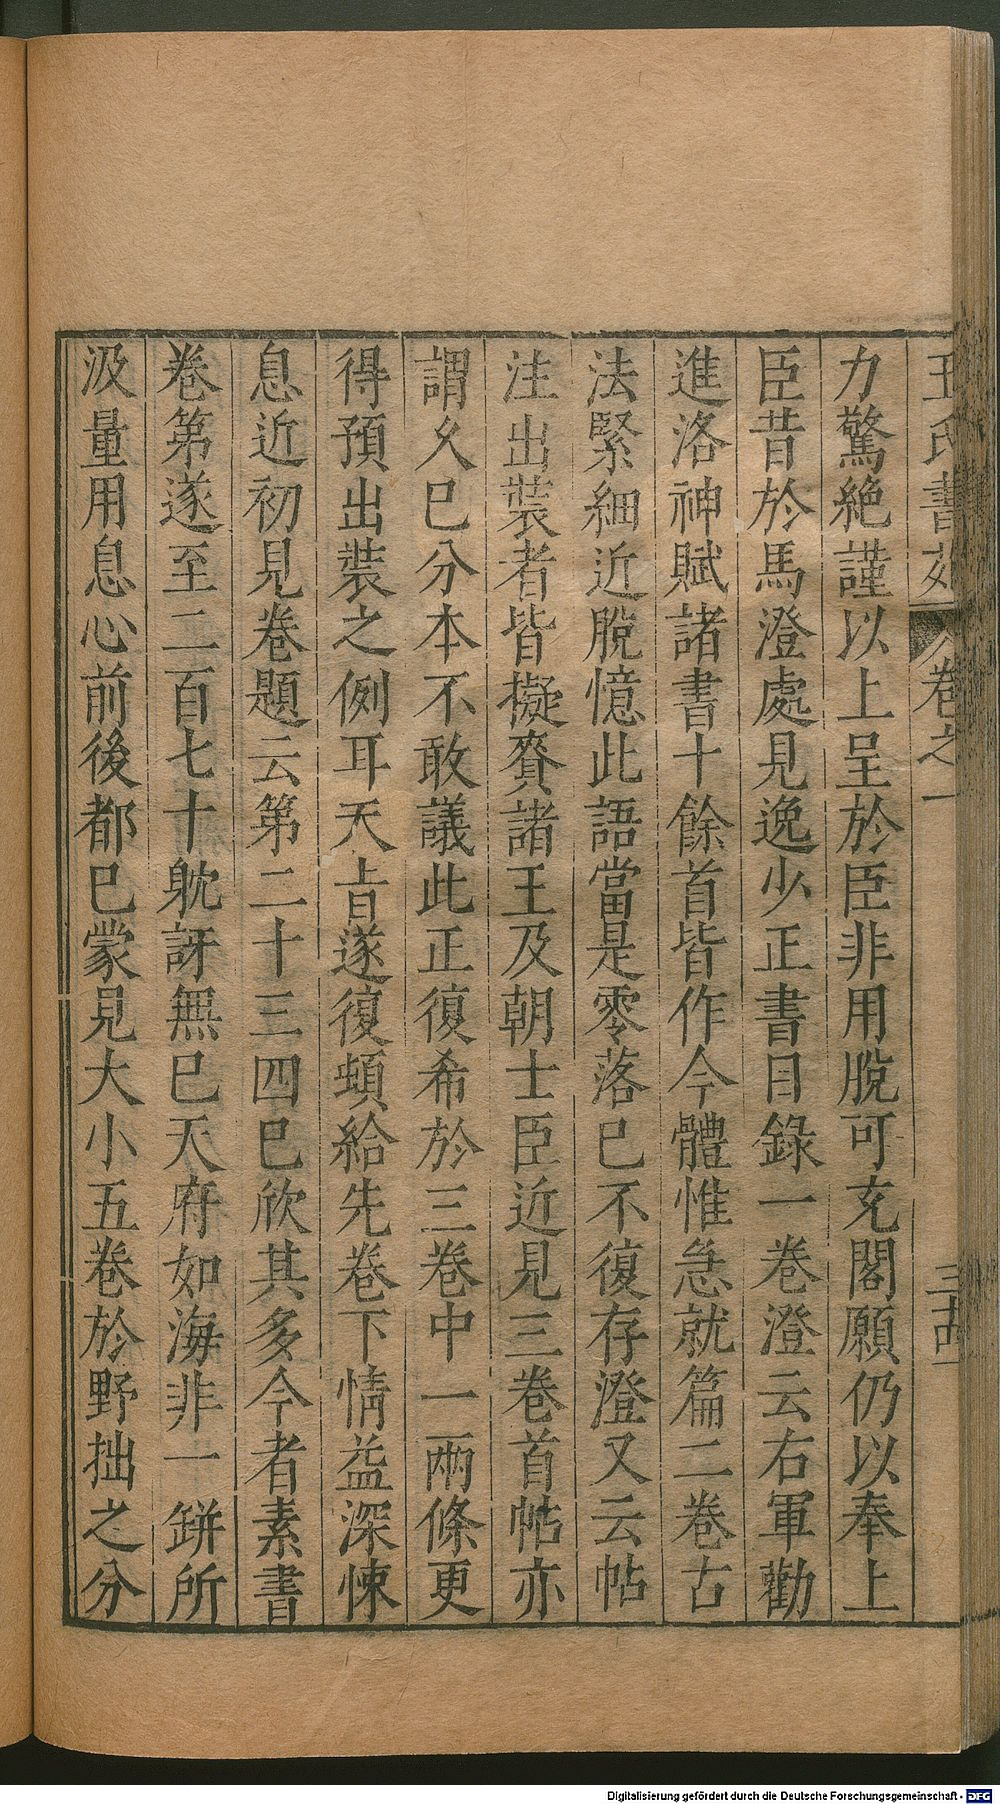 王氏書苑 卷之一 三十四
力驚絶謹以上呈於臣非用脫可充閣願仍以奉上
臣昔於馬澄處見逸少正書目錄一卷澄云右軍勸
進洛神賦諸書十餘首皆作今體惟急就篇二卷古
法緊細近脫憶此語當是零落已不復存澄又云帖
注出裝者皆擬賚諸王及朝士臣近見三卷首帖亦
謂久已分本不敢議此正復希於三卷中一兩條更
得預出裝之例耳天旨遂復頓給先卷下情益深悚
息近初見卷題云第二十三四已欣其多今者素書
卷第遂至二百七十躭訝無已天府如海非一缾所
汲量用息心前後都已蒙見大小五卷於野拙之分
Digitalisierung gefördert durch die Deutsche Forschungsgemeinschaft - DFG